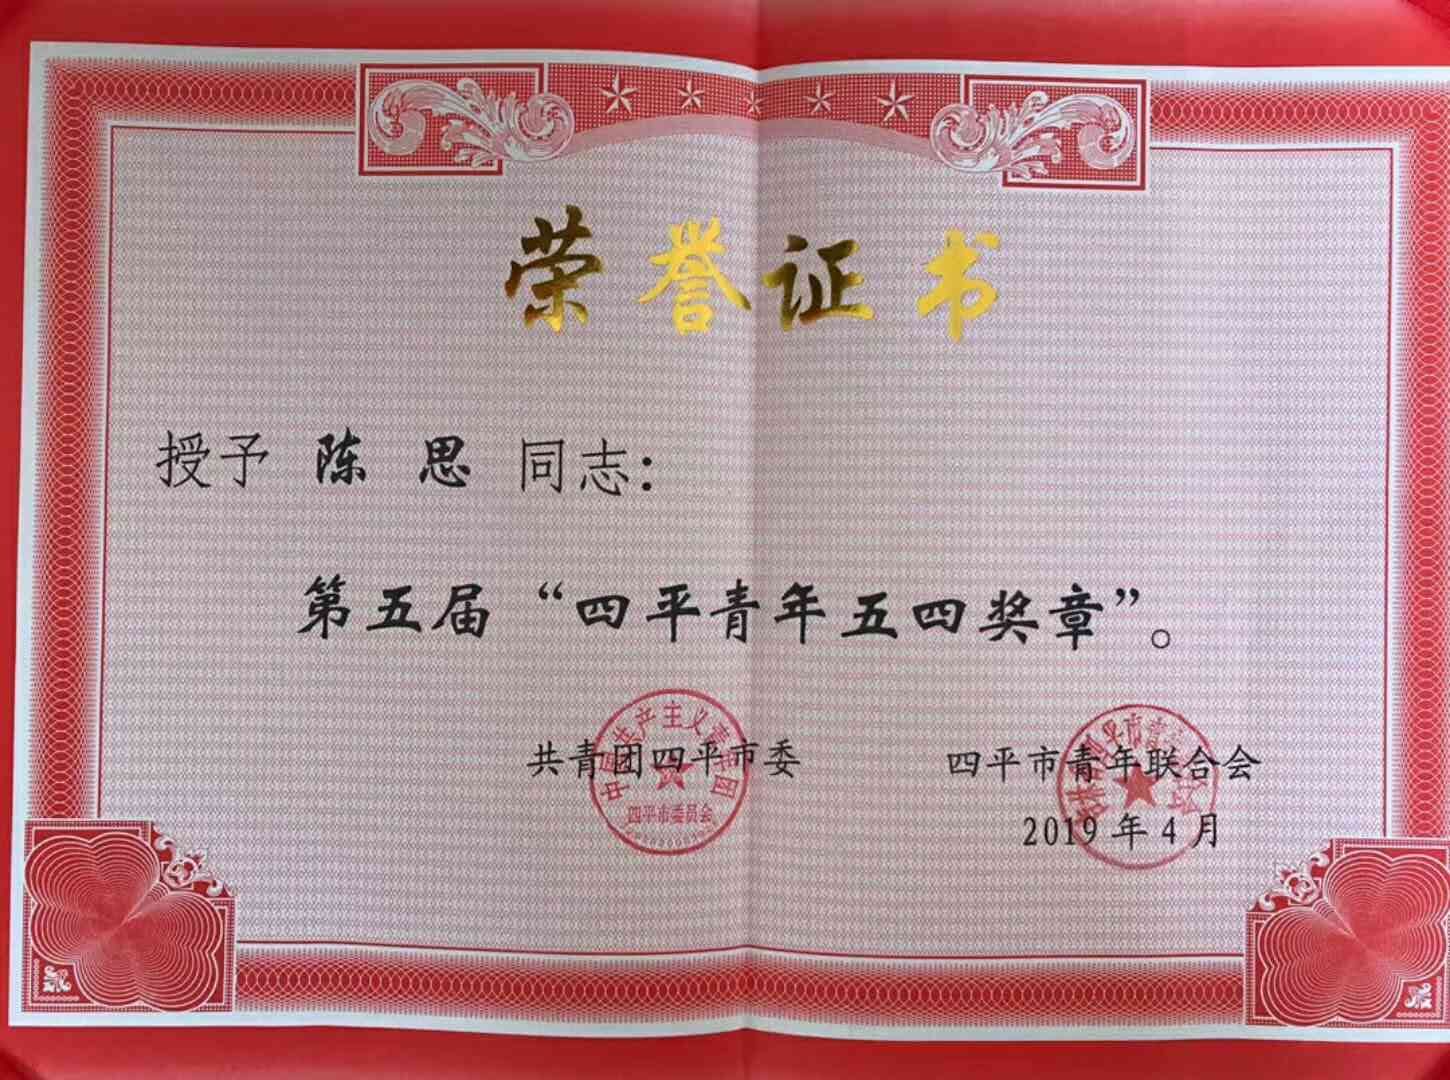 荣誉证书
授予 陈 思 同志：
第五届“四平青年五四奖章”。
共青团四平市委 四平市青年联合会
中国共产主义青年团
四平市委员会
2019年4月